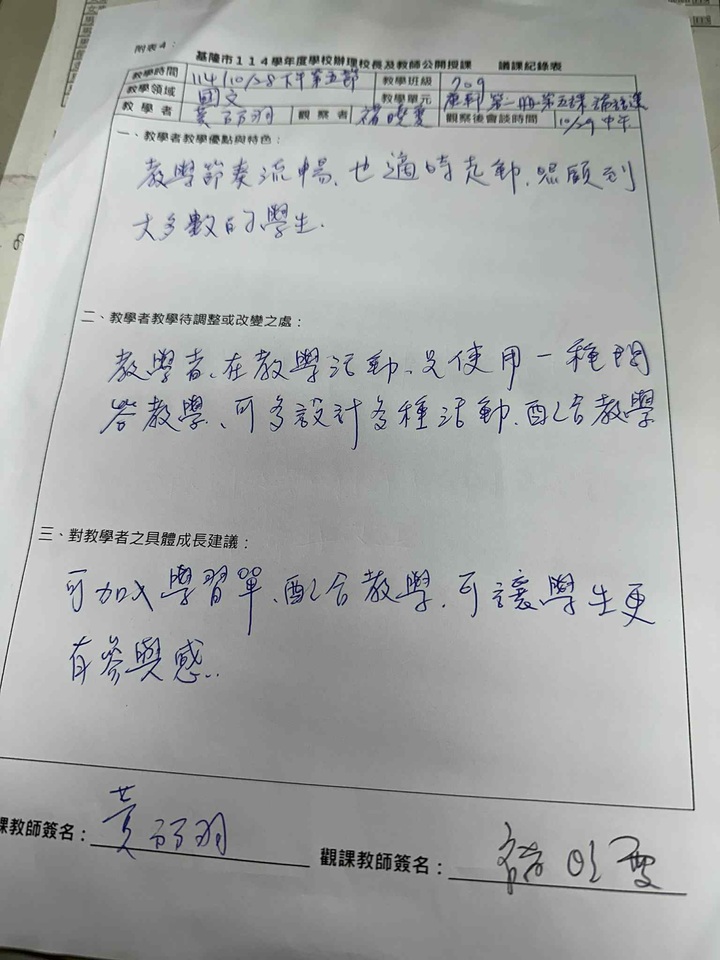 附表4：
基隆市114學年度學校辦理校長及教師公開授課 議課紀錄表
教學時間 114/10/28下午第五節 教學班級 709
教學領域 國文 教學單元 康軒第一冊第五課
教學者 黃 羽 觀察者 觀察後會談時間 10/29中午
一、教學者教學優點與特色：
教學節奏流暢、也適時走動，照顧到
大多數的學生.
二、教學者教學待調整或改變之處：
教學者、在教學活動、只使用一種問
答教學、可多設計多種活動、配合教學
三、對教學者之具體成長建議：
可加入學習單、配合教學，可讓學生更
有參與感..
課教師簽名： 黃 羽 觀課教師簽名：